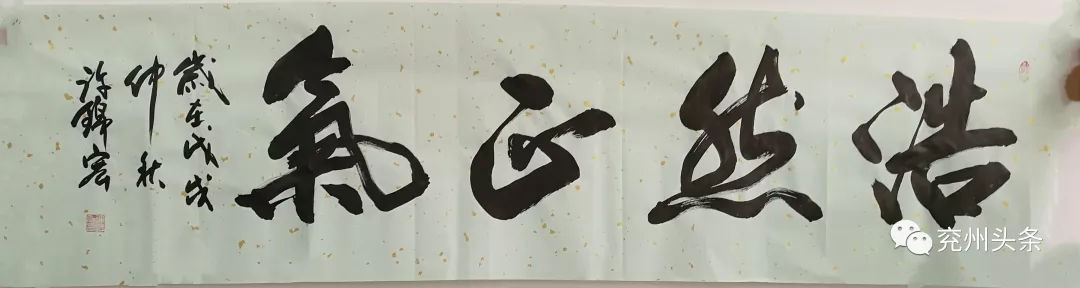 浩然正氣
歲在戊戌
仲秋
許錦宏
兖州头条